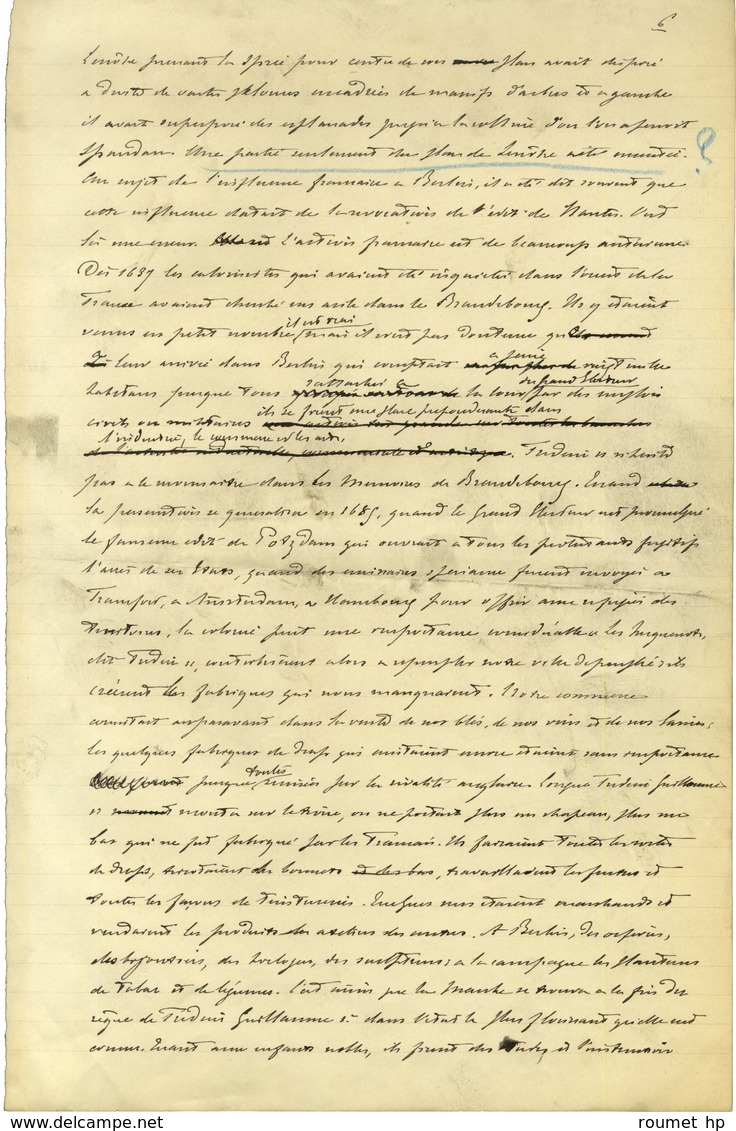 6
Lenôtre prenant la Sprée pour centre de son plan avait disposé
à droite de vastes pelouses encadrées de massifs d'arbres et à gauche
il avait superposé des esplanades jusqu'à la colline d'où l'on aperçoit
Spandau. Une partie seulement du plan de Lenôtre a été exécutée. ?
Au sujet de l'influence française à Berlin, il a été dit souvent que
cette influence datait de la révocation de l'édit de Nantes. C'est
là une erreur. L'action française est de beaucoup antérieure.
Dès 1687 les calvinistes qui avaient été inquiétés dans l'ouest de la
France avaient cherché un asile dans le Brandebourg. Ils y étaient
venus en petit nombre il est vrai mais il n'est pas douteux que
leur arrivée dans Berlin qui comptait à peine vingt mille
habitans presque tous attachés à la cour du grand Electeur par des emplois
civils ou militaires ils se firent une place prépondérante dans
l'industrie, le commerce et les arts. Frédéric II n'hésite
pas à le reconnaître dans les Mémoires de Brandebourg. Quand
la persécution se généralisa en 1685, quand le Grand Electeur eut promulgué
le fameux édit de Potzdam qui ouvrait à tous les protestants fugitifs
l'accès de ses Etats, quand des émissaires spéciaux furent envoyés à
Francfort, à Amsterdam, à Hambourg pour offrir aux réfugiés des
, la colonie prit une importance considérable « les huguenots,
dit Frédéric II, contribuèrent alors à repeupler notre ville dépeuplée ; ils
créèrent les fabriques qui nous manquaient. Notre commerce
consistait auparavant dans la vente de nos blés, de nos vins et de nos laines ;
les quelques fabriques de draps qui existaient encore étaient sans importance
presque toutes ruinées par la rivalité anglaise. Lorsque Frédéric Guillaume
monta sur le trône, on ne portait plus un chapeau, plus un
bas qui ne fut fabriqué par les Français. Ils faisaient toutes les sortes
de draps, tricotaient des bonnets et les bas, travaillaient les
toutes les façons de teinturerie. Quelques uns étaient marchands et
vendaient les produits des ateliers des autres. A Berlin, des orfèvres,
des bijoutiers, des horlogers, des sculpteurs ; à la campagne les planteurs
de tabac et de légumes. C'est ainsi que la Marche se trouva à la fin du
règne de Frédéric Guillaume dans l'état le plus florissant qu'elle eut
connu. Quant aux enfants nobles, ils firent des études et l'instruction